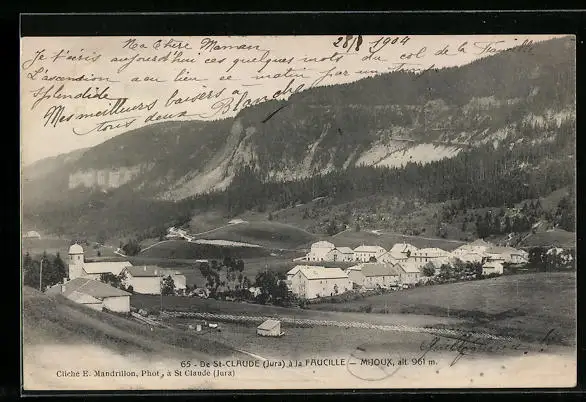 Ma Chère Maman 28/8 1904
Je t'écris aujourd'hui ces quelques mots du col de la Faucille
L'ascension a eu lieu ce matin par un temps
splendide
Mes meilleurs baisers à
tous deux Blanche
65 - De St-CLAUDE (Jura) à la FAUCILLE - MIJOUX, alt. 961 m.
Cliché E. Mandrillon, Phot, à St Claude (Jura)